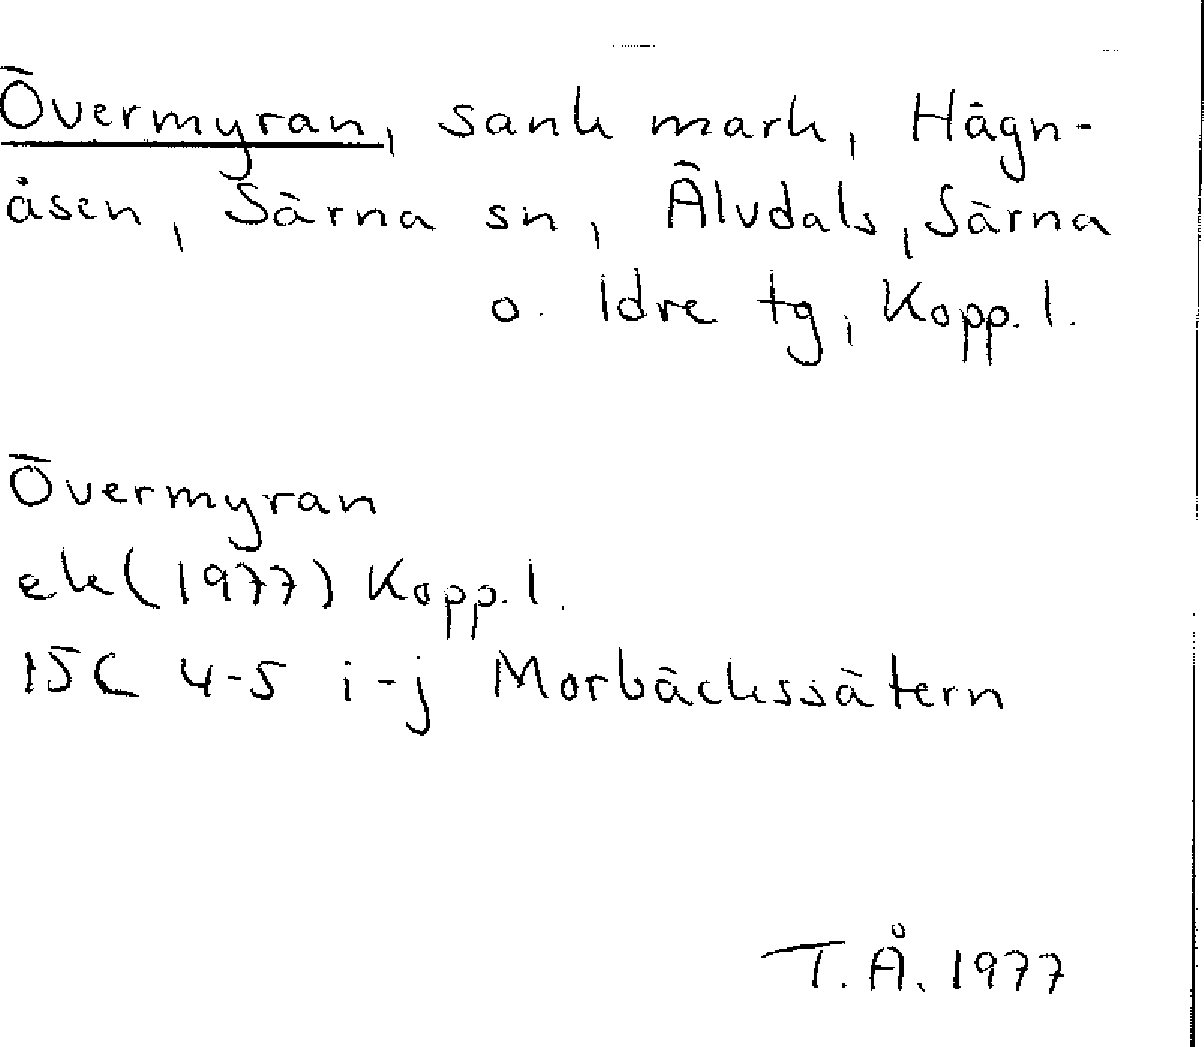 Övermyran, sank mark, Hägn-
åsen, Särna sn, Älvdals, Särna
o. Idre tg, Kopp. l.
Övermyran
ek (1977) Kopp. l.
15C 4-5 i-j Morbäckssätern
T. Å. 1977